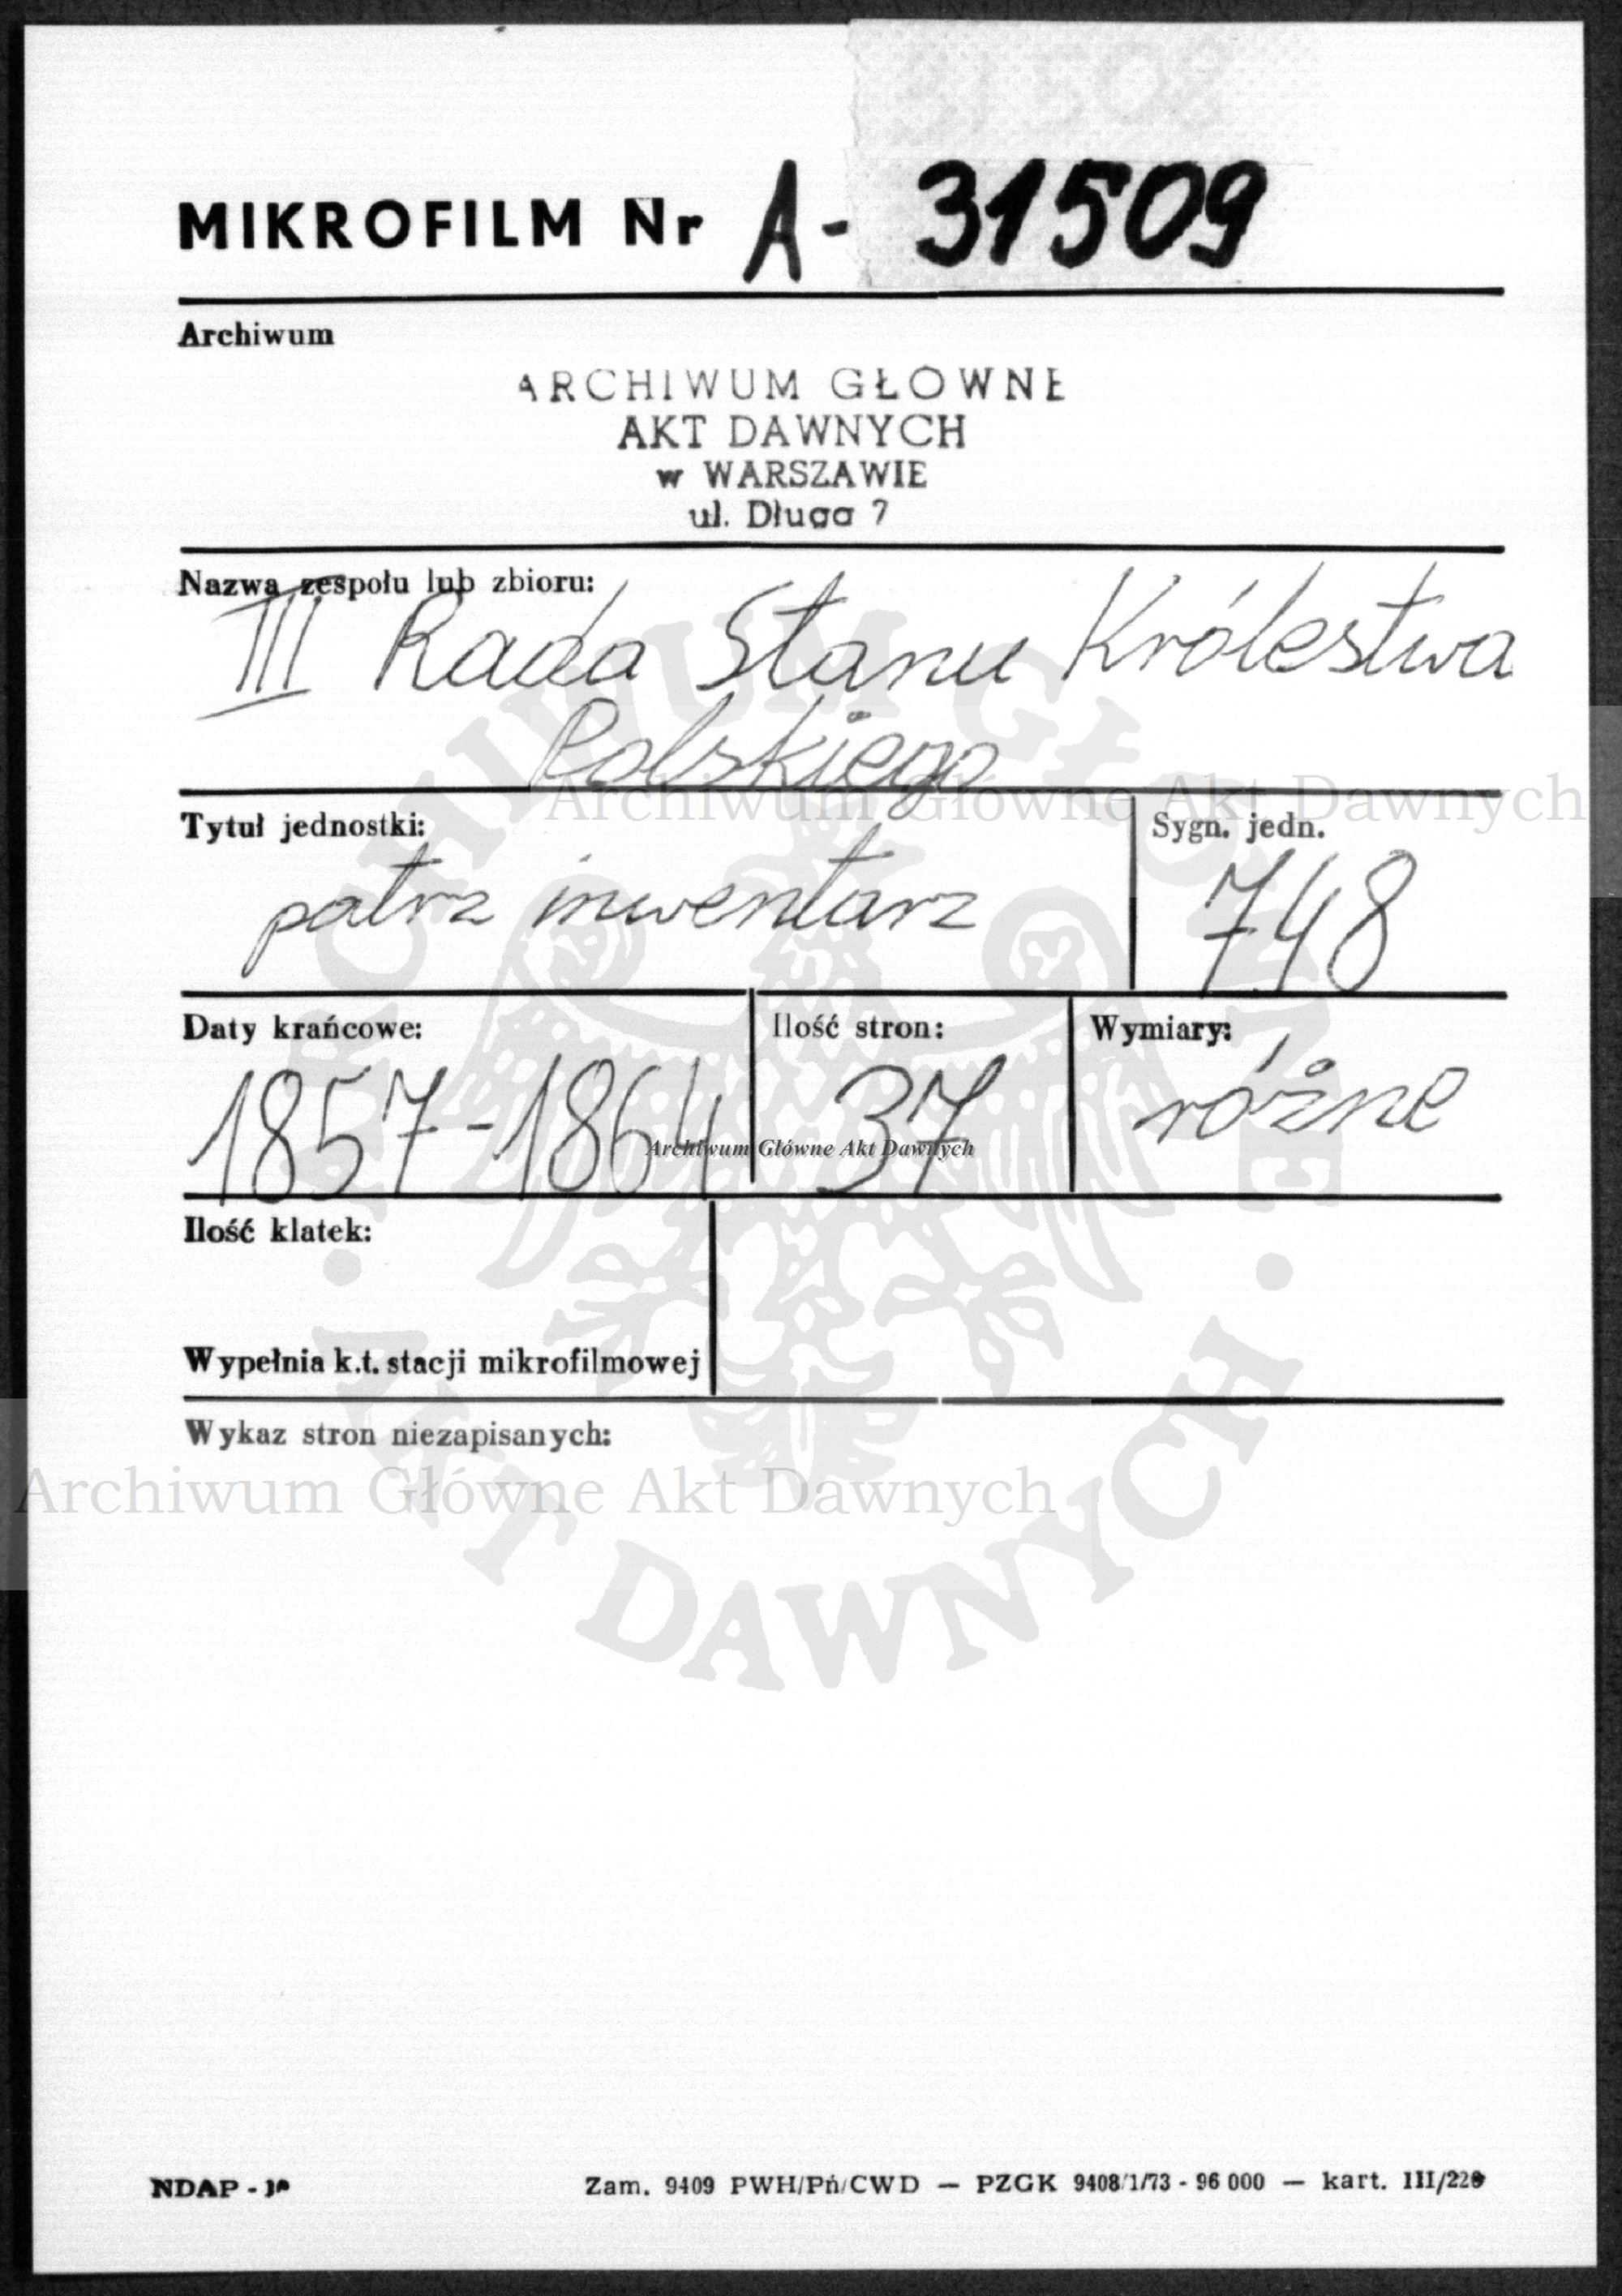 MIKROFILM Nr A- 31509
Archiwum
ARCHIWUM GŁOWNE
AKT DAWNYCH
w WARSZAWIE
ul. Długa 7
Nazwa zespołu lub zbioru:
III Rada Stanu Królestwa
Polskiego
Archiwum Główne Akt Dawnych
Tytuł jednostki:
patrz inwentarz
Sygn. jedn.
748
Daty krańcowe:
1857-1864
Ilość stron:
37
Wymiary:
różne
Archiwum Główne Akt Dawnych
Ilość klatek:
Wypełnia k.t. stacji mikrofilmowej
Wykaz stron niezapisanych:
Archiwum Główne Akt Dawnych
ARCHIWUM GŁÓWNE
AKT DAWNYCH
NDAP -
Zam. 9409 PWH/Pń/CWD — PZGK 9408/1/73 - 96 000 — kart. III/220